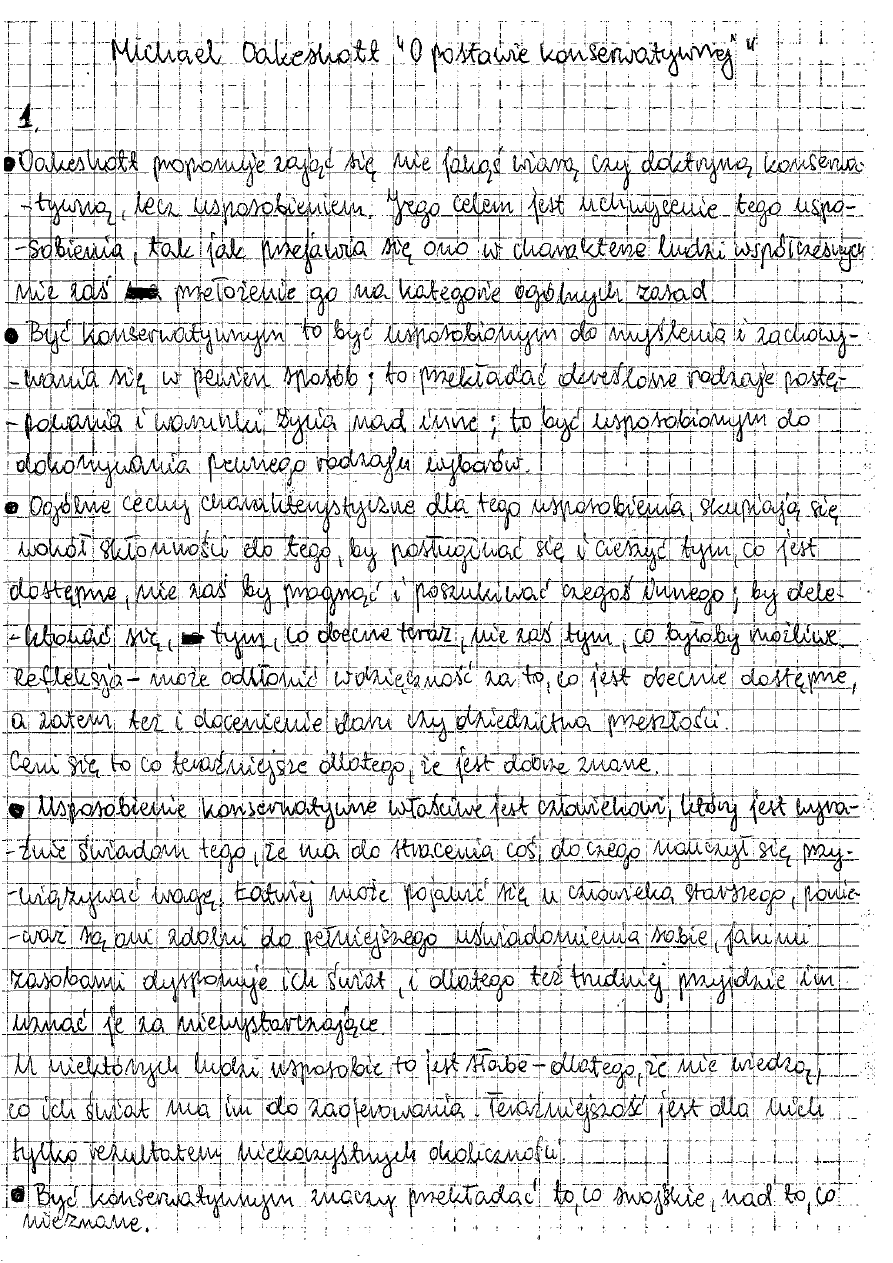 Michael Oakeshott "O postawie konserwatywnej" "
1.
• Oakeshott proponuje zająć się nie jakąś wiarą czy doktryną konserwa-
-tywną, lecz usposobieniem. Jego celem jest uchwycenie tego uspo-
-sobienia, tak jak przejawia się ono w charakterze ludzi współczesnych
nie zaś przełożenie go na kategorie ogólnych zasad.
• Być konserwatywnym to być usposobionym do myślenia i zachowy-
-wania się w pewien sposób; to przekładać określone rodzaje postę-
-powania i warunki życia nad inne; to być usposobionym do
dokonywania pewnego rodzaju wyborów.
• Ogólne cechy charakterystyczne dla tego usposobienia, skupiają się
wokół skłonności do tego, by posługiwać się i cieszyć tym, co jest
dostępne, nie zaś by pragnąć i poszukiwać czegoś innego; by dele-
-ktować się, tym, co obecne teraz, nie zaś tym, co byłoby możliwe.
Refleksja – może odsłonić wdzięczność za to, co jest obecnie dostępne,
a zatem też i docenienie daru czy dziedzictwa przeszłości.
Ceni się to co teraźniejsze dlatego, że jest dobrze znane.
• Usposobienie konserwatywne właściwe jest człowiekowi, który jest wyra-
-źnie świadom tego, że ma do stracenia coś, do czego nauczył się przy-
-wiązywać wagę. Łatwiej może pojawić się u człowieka starszego, ponie-
-waż są oni zdolni do pełniejszego uświadomienia sobie, jakimi
zasobami dysponuje ich świat, i dlatego też trudniej przyjdzie im
uznać je za niewystarczające.
U niektórych ludzi usposobie to jest słabe – dlatego, że nie wiedzą,
co ich świat ma im do zaoferowania. Teraźniejszość jest dla nich
tylko rezultatem niekorzystnych okoliczności.
• Być konserwatywnym znaczy przekładać to, co swojskie, nad to, co
nieznane.